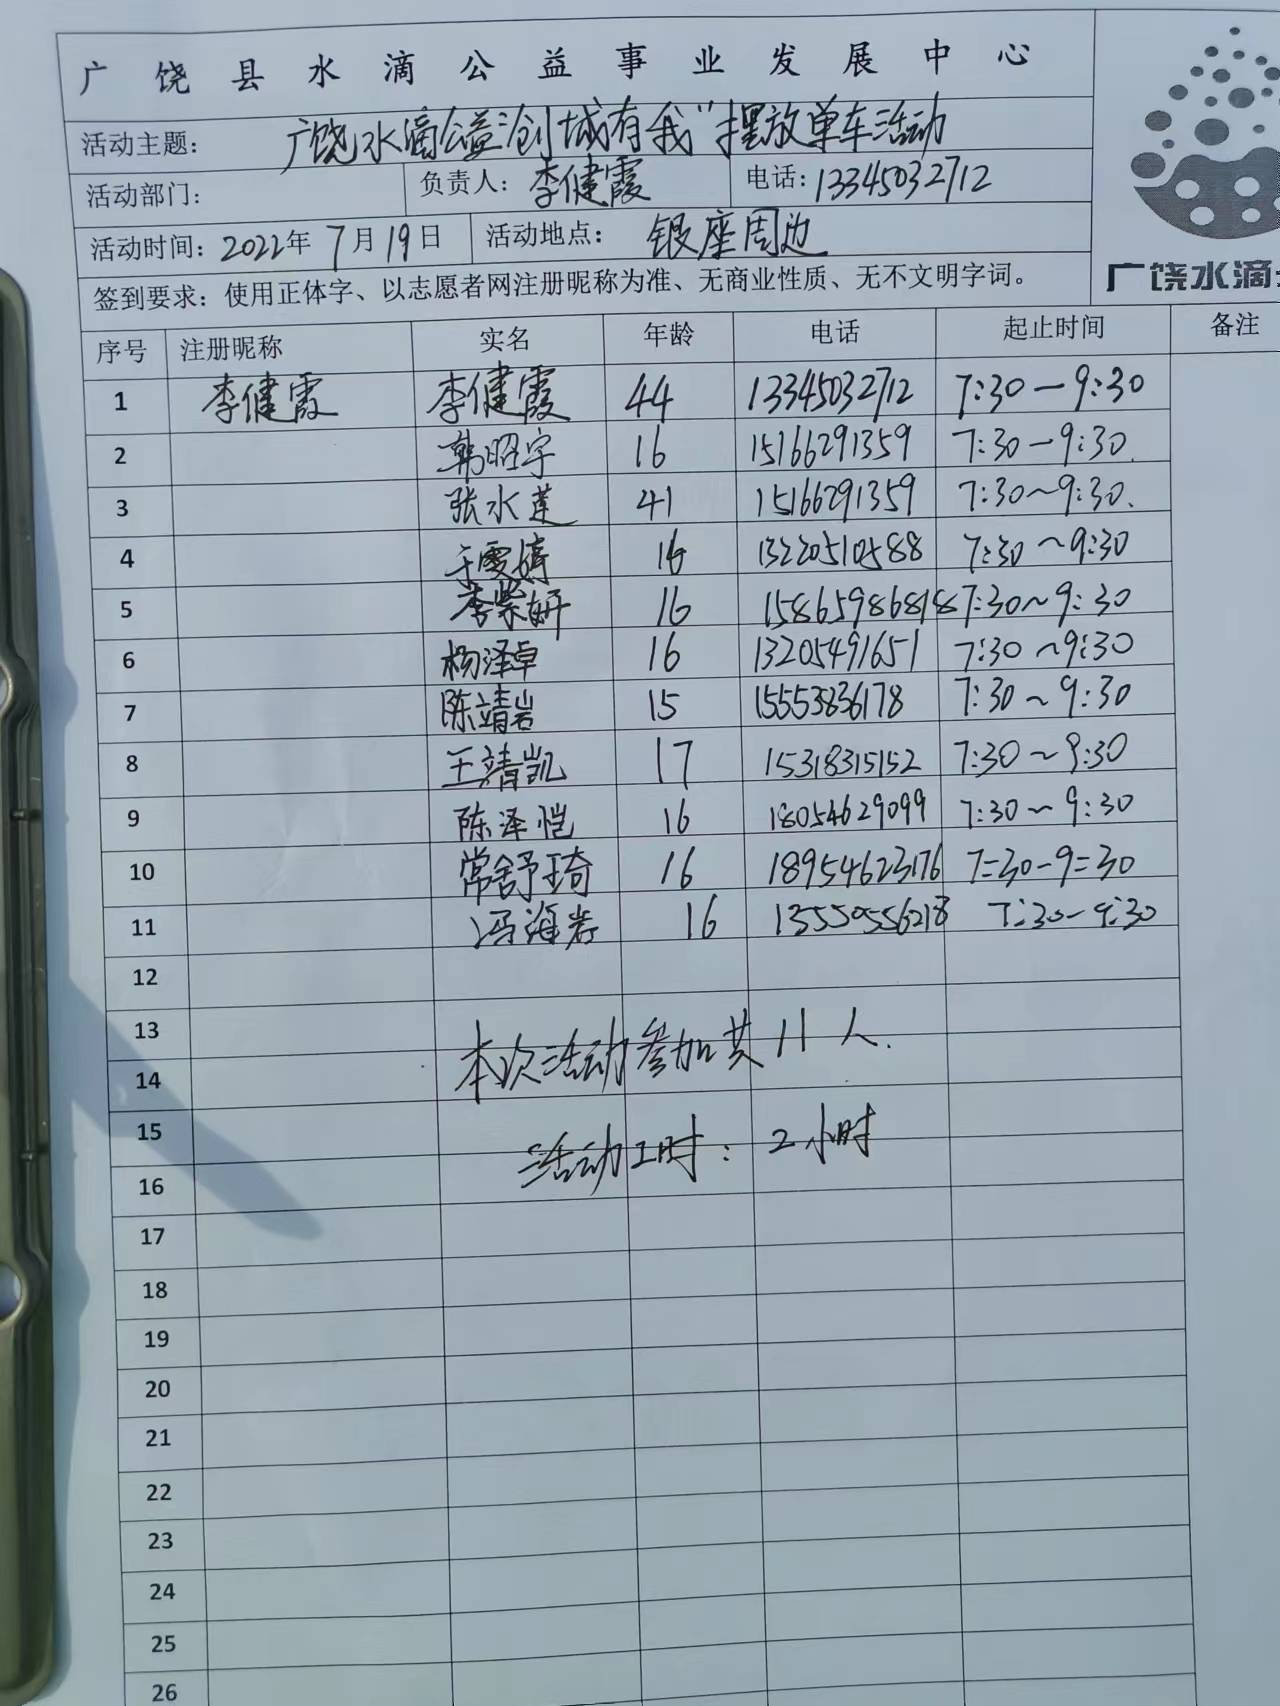 广饶县水滴公益事业发展中心
活动主题： 广饶水滴公益"创城有我"摆放单车活动
活动部门： 负责人：李健霞 电话：13345032712
活动时间：2022年7月19日 活动地点： 银座周边
广饶水滴
签到要求：使用正体字、以志愿者网注册昵称为准、无商业性质、无不文明字词。
序号 注册昵称 实名 年龄 电话 起止时间 备注
1 李健霞 李健霞 44 13345032712 7:30—9:30
2 韩昭宇 16 15166291359 7:30—9:30.
3 张水莲 41 15166291359 7:30~9:30.
4 于雯婷 16 13220510588 7:30~9:30
5 李紫妍 16 15865986818 7:30~9:30
6 杨泽卓 16 13205491651 7:30~9:30
7 陈靖岩 15 15553836178 7:30~9:30
8 王靖凯 17 15318315152 7:30~9:30
9 陈泽恺 16 18054629099 7:30~9:30
10 常舒琦 16 18954623176 7=30-9=30
11 冯海岩 16 13550556218 7:30-9:30
12
13
本次活动参加共11人.
14
15
活动工时：2小时
16
17
18
19
20
21
22
23
24
25
26